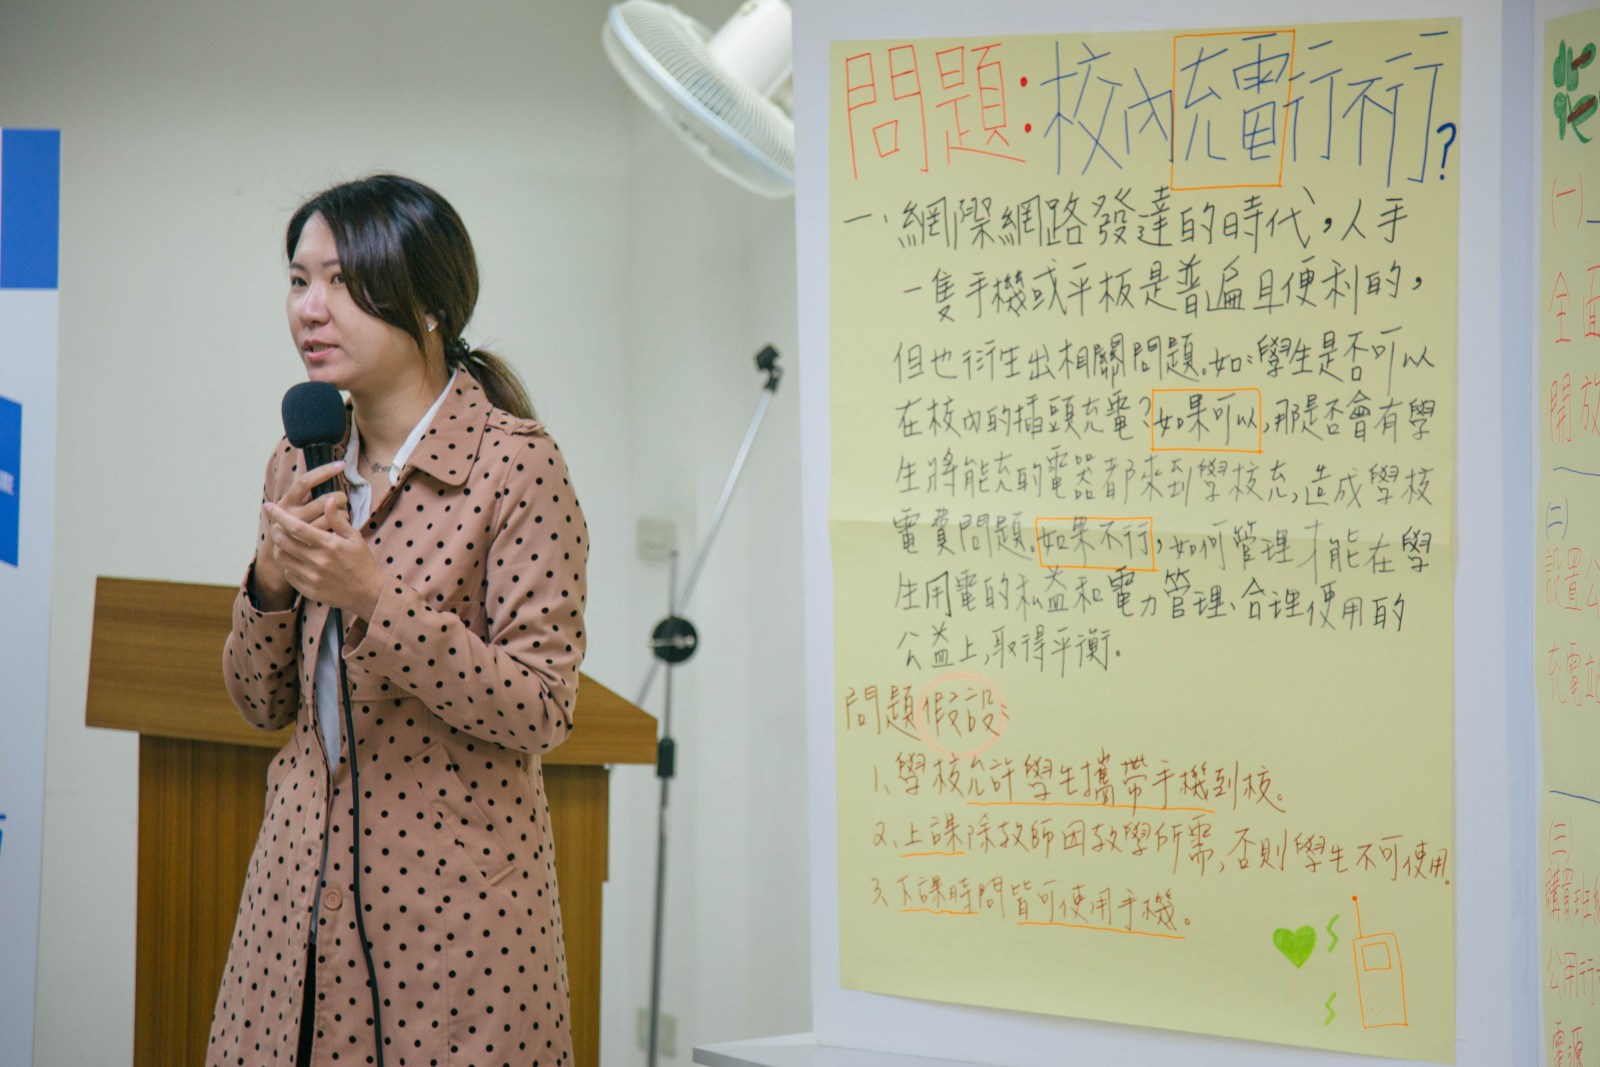 問題:校內充電行不行?
一、網際網路發達的時代,人手
一隻手機或平板是普遍且便利的,
但也衍生出相關問題。如:學生是否可以
在校內的插頭充電?如果可以,那是否會有學
生將能充的電器都來到學校充,造成學校
電費問題。如果不行,如何管理才能在學
生用電的私益和電力管理、合理使用的
公益上,取得平衡。
問題假設:
1、學校允許學生攜帶手機到校。
2、上課除教師因教學所需,否則學生不可使用。
3、下課時間皆可使用手機。
(一)
全面
開放
(二)
設置公
充電站
(三)
購買班級
公用行
電源